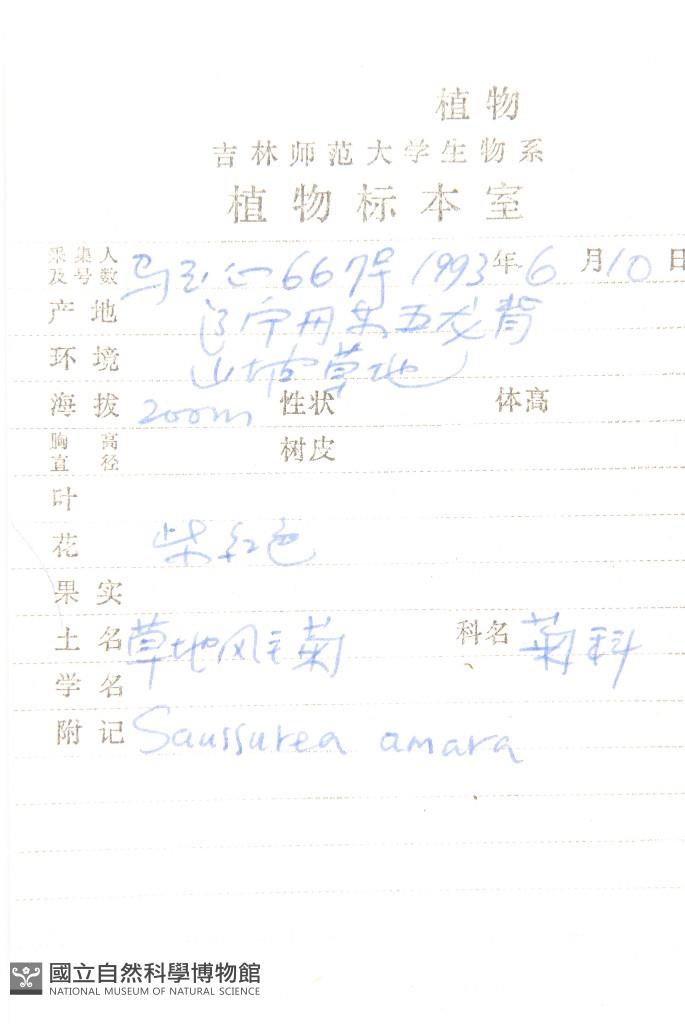 植物
吉林师范大学生物系
植物标本室
采集人及号数 马玉心 667号 1993年6月10日
产地 辽宁丹东五龙背
环境 山坡草地
海拔 200m 性状 体高
胸高直径 树皮
叶
花 柴红色
果实
土名 草地风毛菊 科名 菊科
学名
附记 Saussurea amara
國立自然科學博物館
NATIONAL MUSEUM OF NATURAL SCIENCE